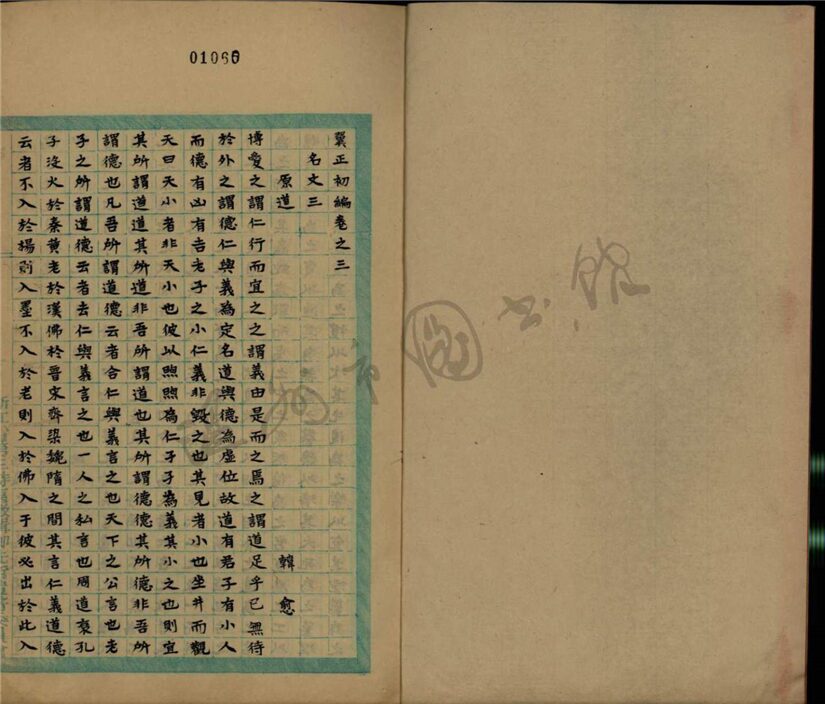 翼正初編卷之三
名文三
原道 韓愈
博愛之謂仁行而宜之之謂義由是而之焉之謂道足乎已無待
於外之謂德仁與義為定名道與德為虛位故道有君子有小人
而德有凶有吉老子之小仁義非毀之也其見者小也坐井而觀
天曰天小者非天小也彼以煦煦為仁孑孑為義其小之也則宜
其所謂道道其所道非吾所謂道也其所謂德德其所德非吾所
謂德也凡吾所謂道德云者合仁與義言之也天下之公言也老
子之所謂道德云者去仁與義言之也一人之私言也周道衰孔
子沒火於秦黃老於漢佛於晉宋齊梁魏隋之間其言仁義道德
云者不入於楊則入墨不入於老則入於佛入于彼必出於此入